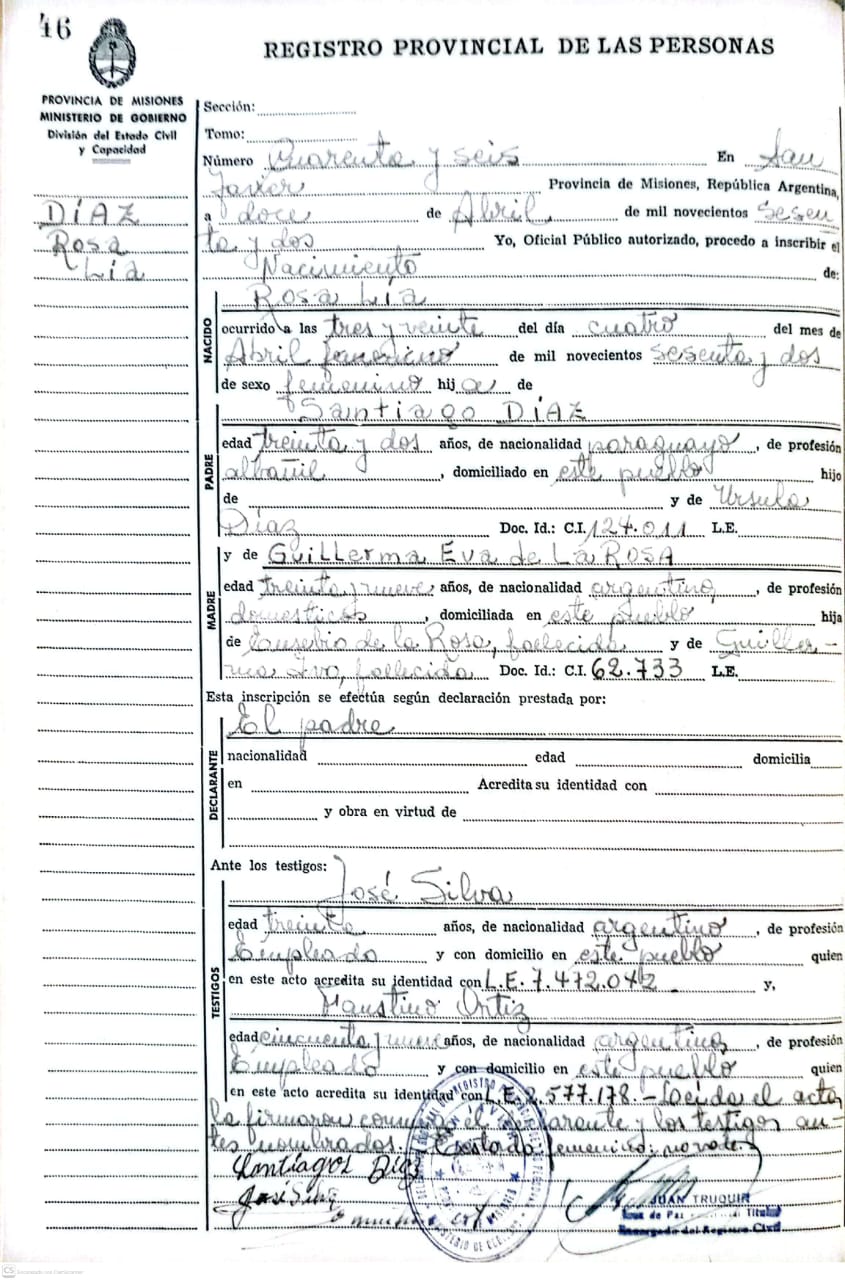 46
REGISTRO PROVINCIAL DE LAS PERSONAS
PROVINCIA DE MISIONES
MINISTERIO DE GOBIERNO
División del Estado Civil
y Capacidad
DÍAZ
Rosa
Lía
Sección:
Tomo:
Número Cuarenta y seis En San
Javier Provincia de Misiones, República Argentina,
a doce de Abril de mil novecientos sesen
ta y dos Yo, Oficial Público autorizado, procedo a inscribir el
Nacimiento de:
NACIDO
Rosa Lía
ocurrido a las tres y veinte del día cuatro del mes de
Abril femenino de mil novecientos sesenta y dos
de sexo femenino hija de
PADRE
Santiago DÍAZ
edad treinta y dos años, de nacionalidad paraguayo, de profesión
albañil, domiciliado en este pueblo hijo
de y de Ursula
Díaz Doc. Id.: C.I. 124.011 L.E.
MADRE
y de Guillerma Eva de La ROSA
edad treinta y nueve años, de nacionalidad argentina, de profesión
domesticas, domiciliada en este pueblo hija
de Eusebio de la Rosa, faellecido y de Guiller-
ma fallecida Doc. Id.: C.I. 62.733 L.E.
Esta inscripción se efectúa según declaración prestada por:
DECLARANTE
El padre
nacionalidad edad domicilia
en Acredita su identidad con
y obra en virtud de
Ante los testigos:
TESTIGOS
José Silva
edad treinta años, de nacionalidad argentino, de profesión
Empleado y con domicilio en este pueblo quien
en este acto acredita su identidad con L.E. 7.472.042 y,
Faustino Ortiz
edad cincuenta y nueve años, de nacionalidad argentino, de profesión
Empleado y con domicilio en este pueblo quien
en este acto acredita su identidad con L.E. 2.577.178.- Leída el acta
la firmaron conmigo el declarante y los testigos an-
tes nombrados.- femenino: no vale.
Santiagos Diaz
José Silva
JUAN TRUQUIR
Juez de Paz Titular
Encargado del Registro Civil
CS Escaneado con CamScanner